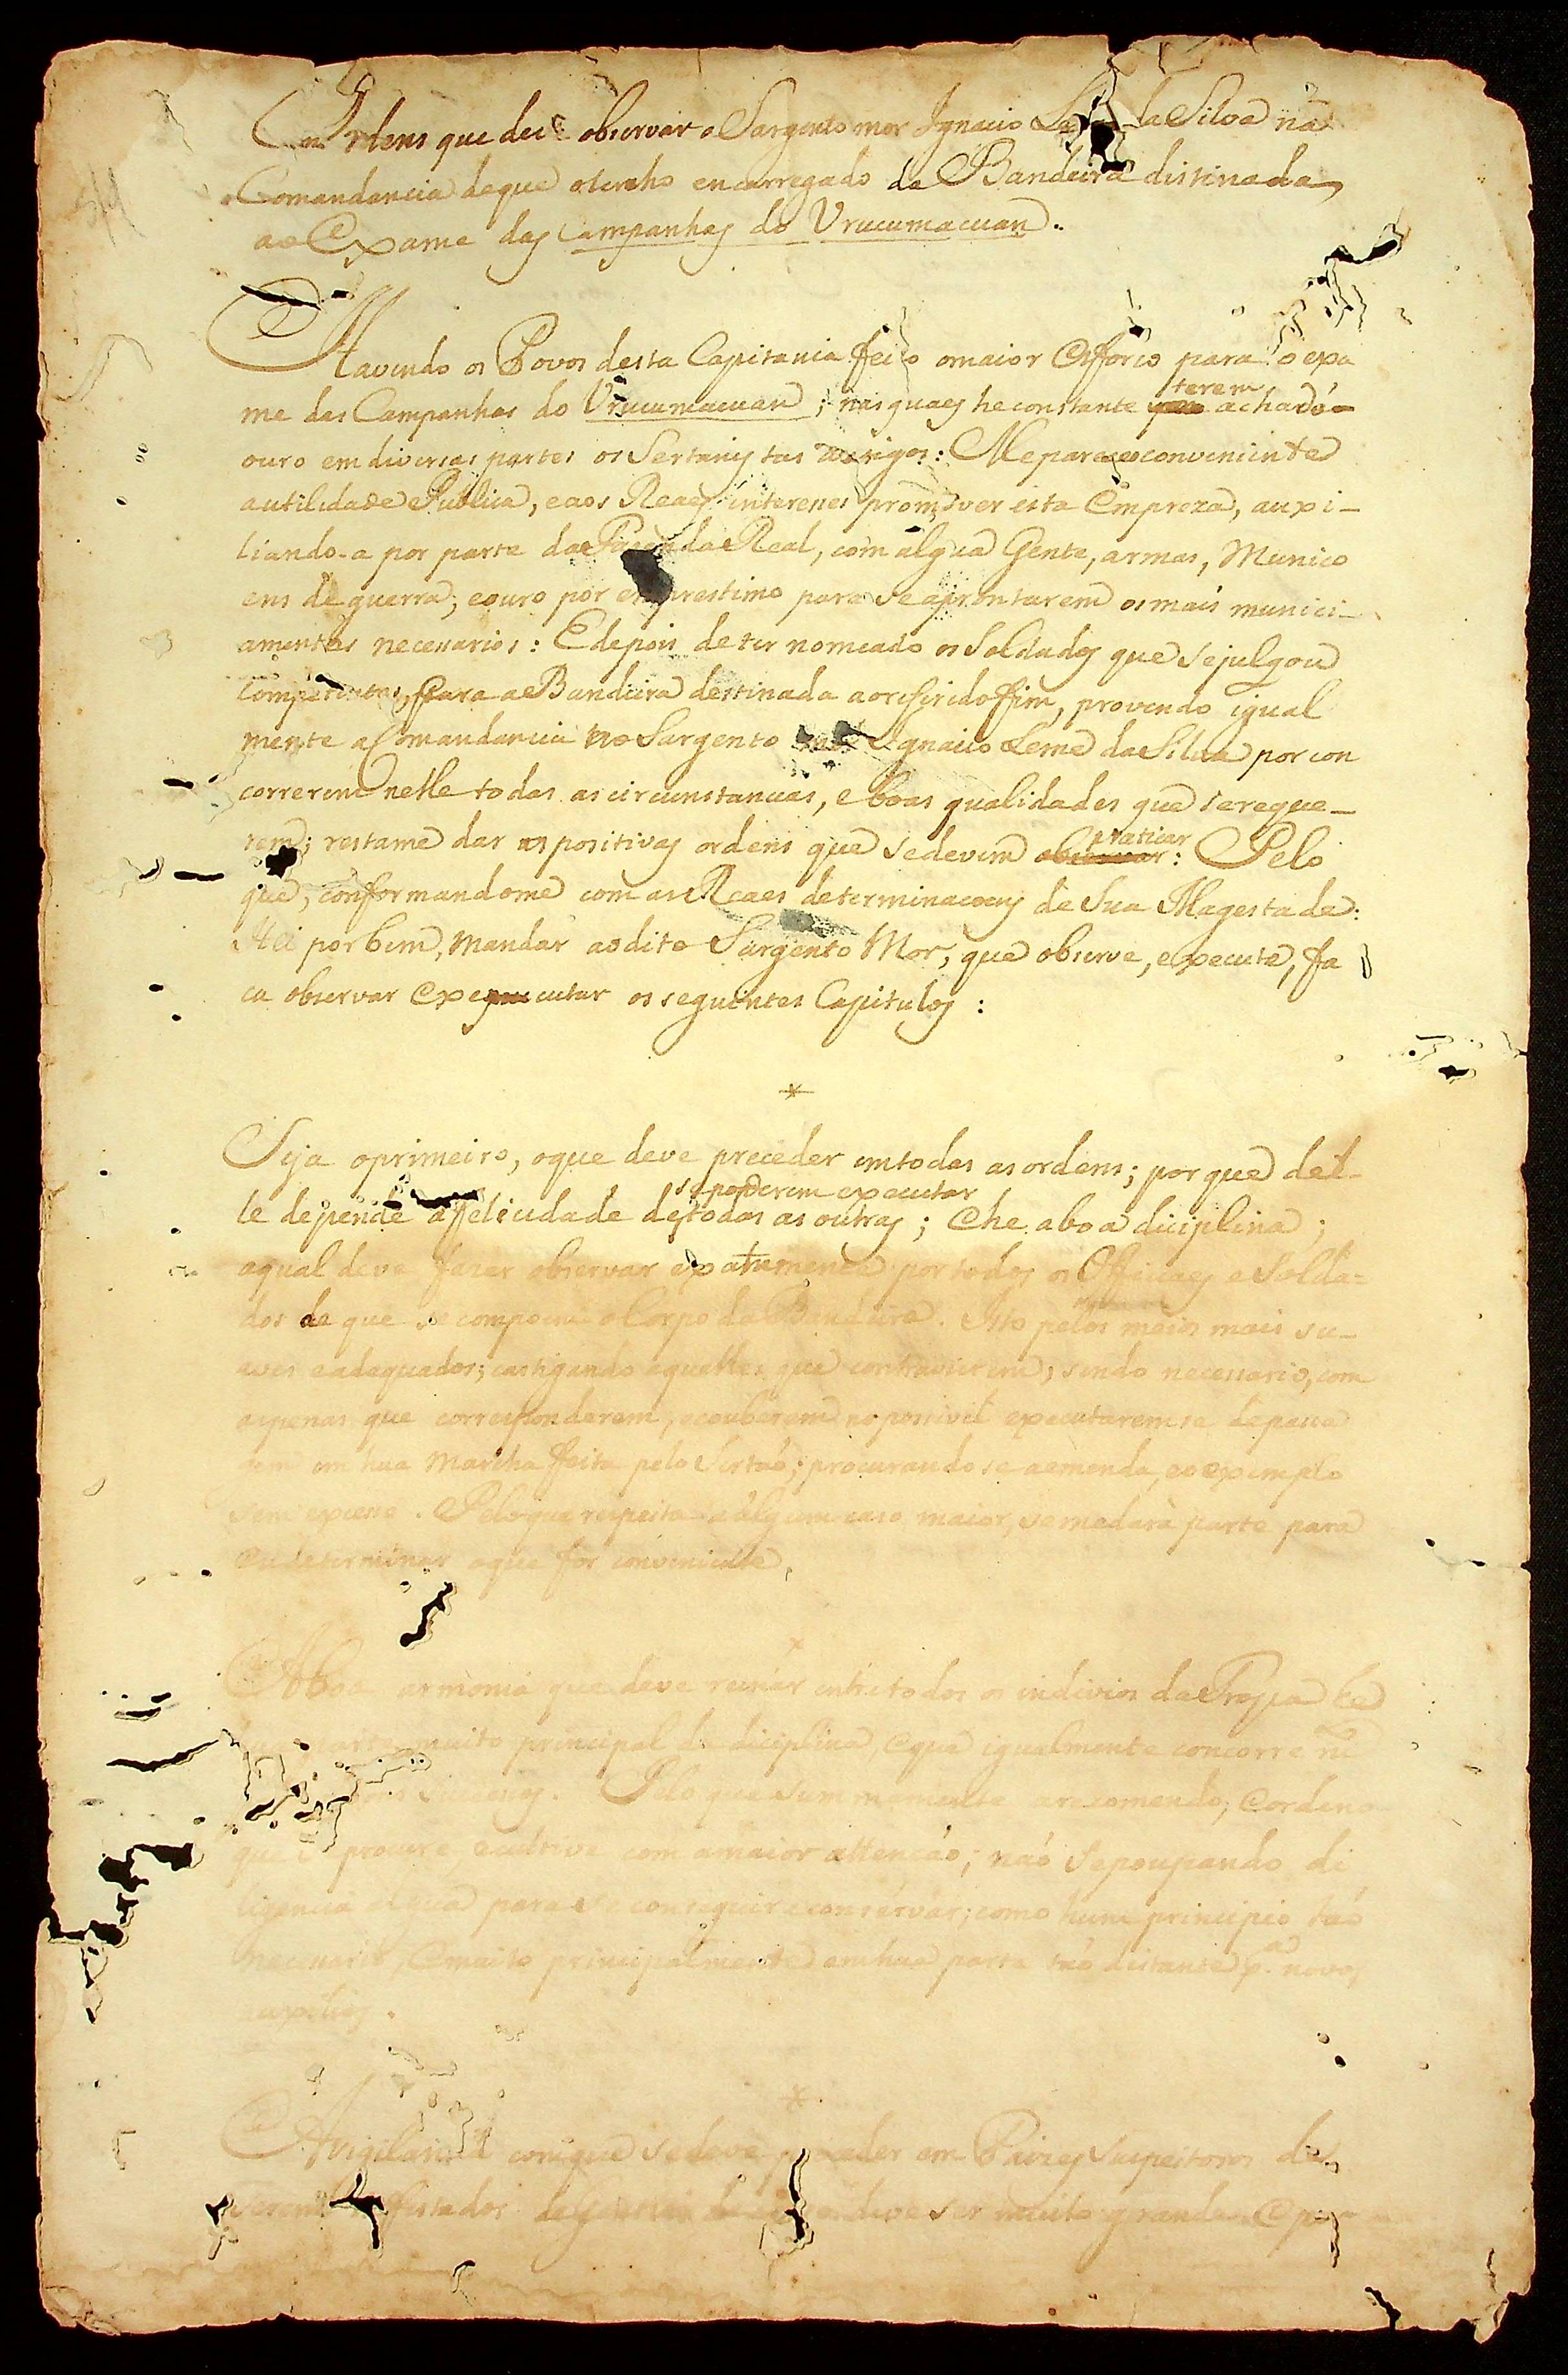 Ordens que deve observar o Sargento mor Ignacio Leme da Silva na
Comandancia de que o tenho encarregado da Bandeira distinada
ao Exame das Campanhas do Urucumacuan.
Havendo os Povos desta Capitania feito o maior Esforço para o exa
me das Campanhas do Urucumacuan; nas quaes he constante terem achado
ouro em diversas partes os Sertanistas antigos: Me pareceo conveniente
a utilidade Publica, e aos Reaes interesses promover esta Empreza, auxi-
liando-a por parte da Fazenda Real, com algua Gente, armas, Munico
ens de guerra; e ouro por emprestimo para se aprontarem os mais munici-
amentos necessarios: E depois de ter nomeado os Soldados que se julgou
competentes, para a Bandeira destinada ao referido ffim, provendo igual
mente a Comandancia no Sargento mor Ignacio Leme da Silva por con
correrem nelle todas as circunstancias, e boas qualidades que se reque-
rem; restame dar as positivas ordens que se devem observar praticar: Pelo
que, conformandome com as Reaes determinacoens de Sua Magestade:
Hei por bem, Mandar ao dito Sargento Mor, que observe, execute, fa
ca observar e executar os seguintes Capitulos:
*
Seja o primeiro, o que deve preceder em todas as ordens; por que del-
le depende a felicidade de se poderem executar todas as outras; E he a boa diciplina;
a qual deve fazer observar exatamente por todos os Officiaes e Solda=
dos de que se compoem o Corpo da Bandeira. Isto pelos meios mais su-
aves e adequados; castigando aquelles que contravierem, sendo necessario, com
as penas que corresponderem, e couberem no possivel executarem-se de passa
gem em hua Marcha ffeita pelo Sertaó; procurando se a emenda, e o exemplo
sem excesso. Pelo que respeita a algum caso maior, se me dará parte para
Eu determinar o que for conveniente.
*
A boa armonia que deve reinar entre todos os indivios da Tropa he
parte muito principal da diciplina, e que igualmente concorre
Pelo que summamente recomendo, e ordeno
que se procure, e cultive com a maior attencáo; náo se poupando di
ligencia algua para se conseguir e conservar; como hum principio táo
necessario, e muito principalmente em hua parte táo distante p.ª novos
auxilios.
*
A vigilancia com que se deve proceder em Paizes suspeitosos de
serem infestados de deve ser muito grande. E por